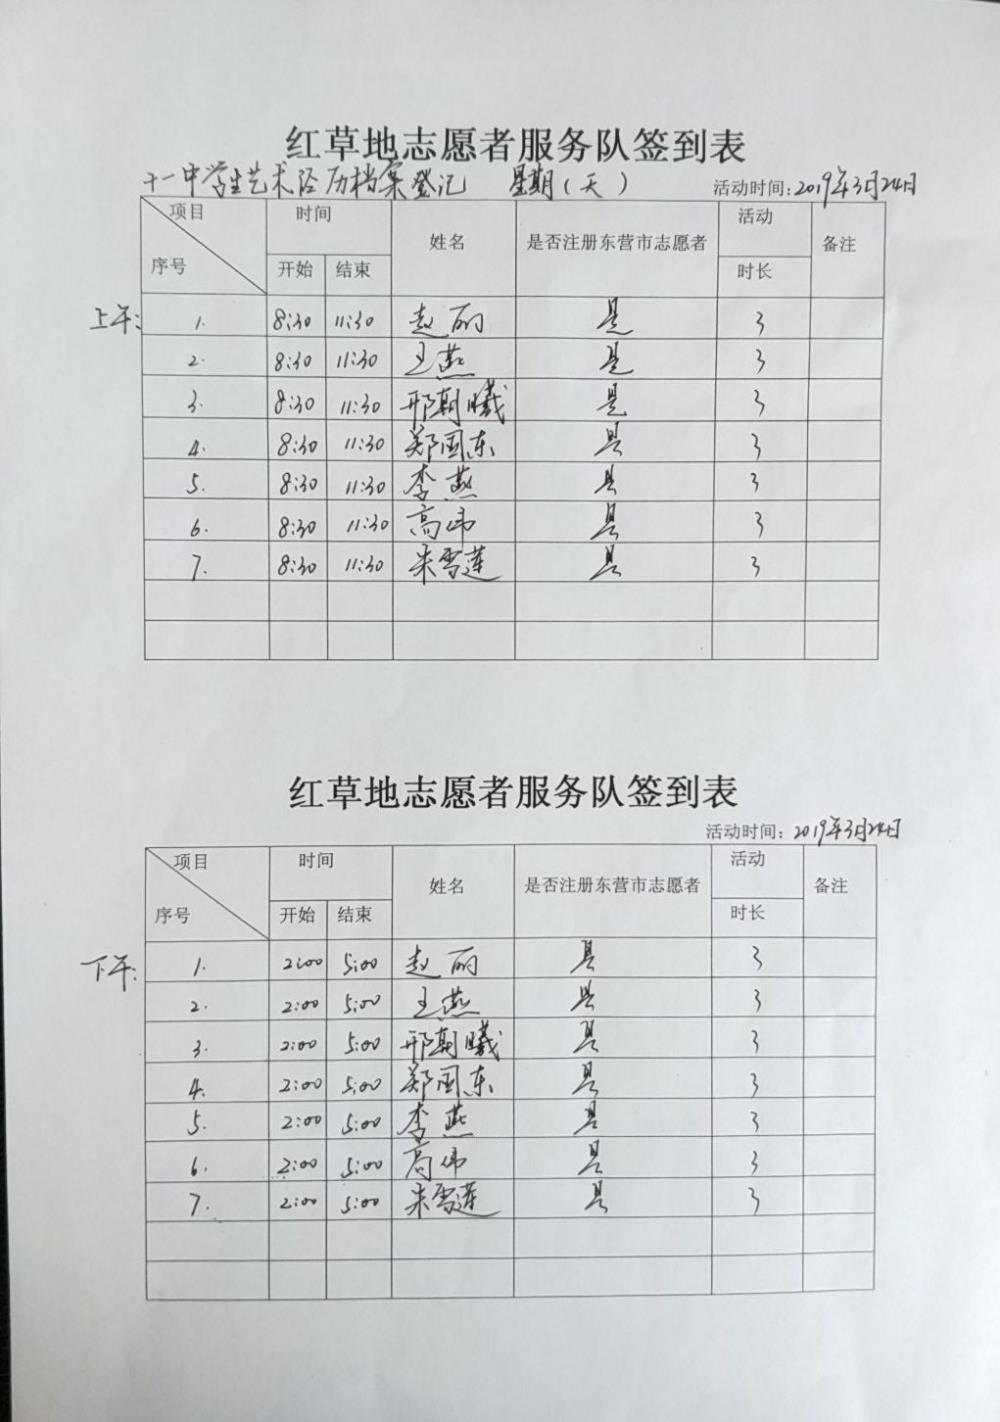 红草地志愿者服务队签到表
十一中学生艺术经历档案登记 星期(天) 活动时间:2019年3月24日
项目 时间 活动
姓名 是否注册东营市志愿者 备注
序号 开始 结束 时长
上午: 1. 8:30 11:30 赵丽 是 3
2. 8:30 11:30 王燕 是 3
3. 8:30 11:30 邢朝曦 是 3
4. 8:30 11:30 郑国东 是 3
5. 8:30 11:30 李燕 是 3
6. 8:30 11:30 高伟 是 3
7. 8:30 11:30 朱雪莲 是 3
红草地志愿者服务队签到表
活动时间:2019年3月24日
项目 时间 活动
姓名 是否注册东营市志愿者 备注
序号 开始 结束 时长
下午: 1. 2:00 5:00 赵丽 是 3
2. 2:00 5:00 王燕 是 3
3. 2:00 5:00 邢朝曦 是 3
4. 2:00 5:00 郑国东 是 3
5. 2:00 5:00 李燕 是 3
6. 2:00 5:00 高伟 是 3
7. 2:00 5:00 朱雪莲 是 3